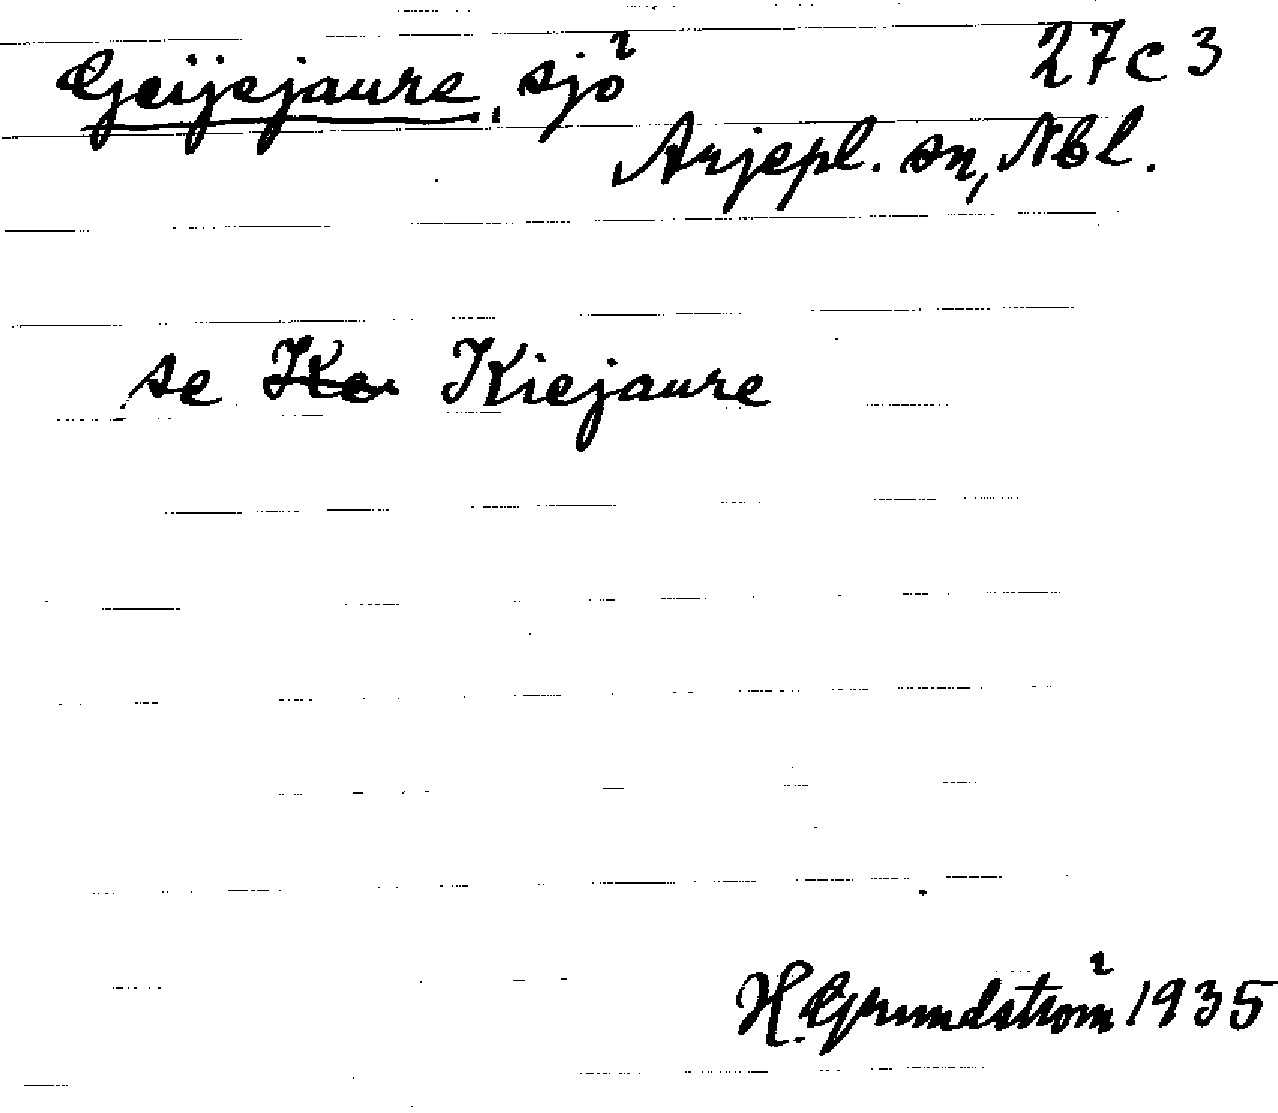 Geijejaure, sjö 27c3
Arjepl. sn, Nbl.
se Kiejaure
H. Grundström 1935